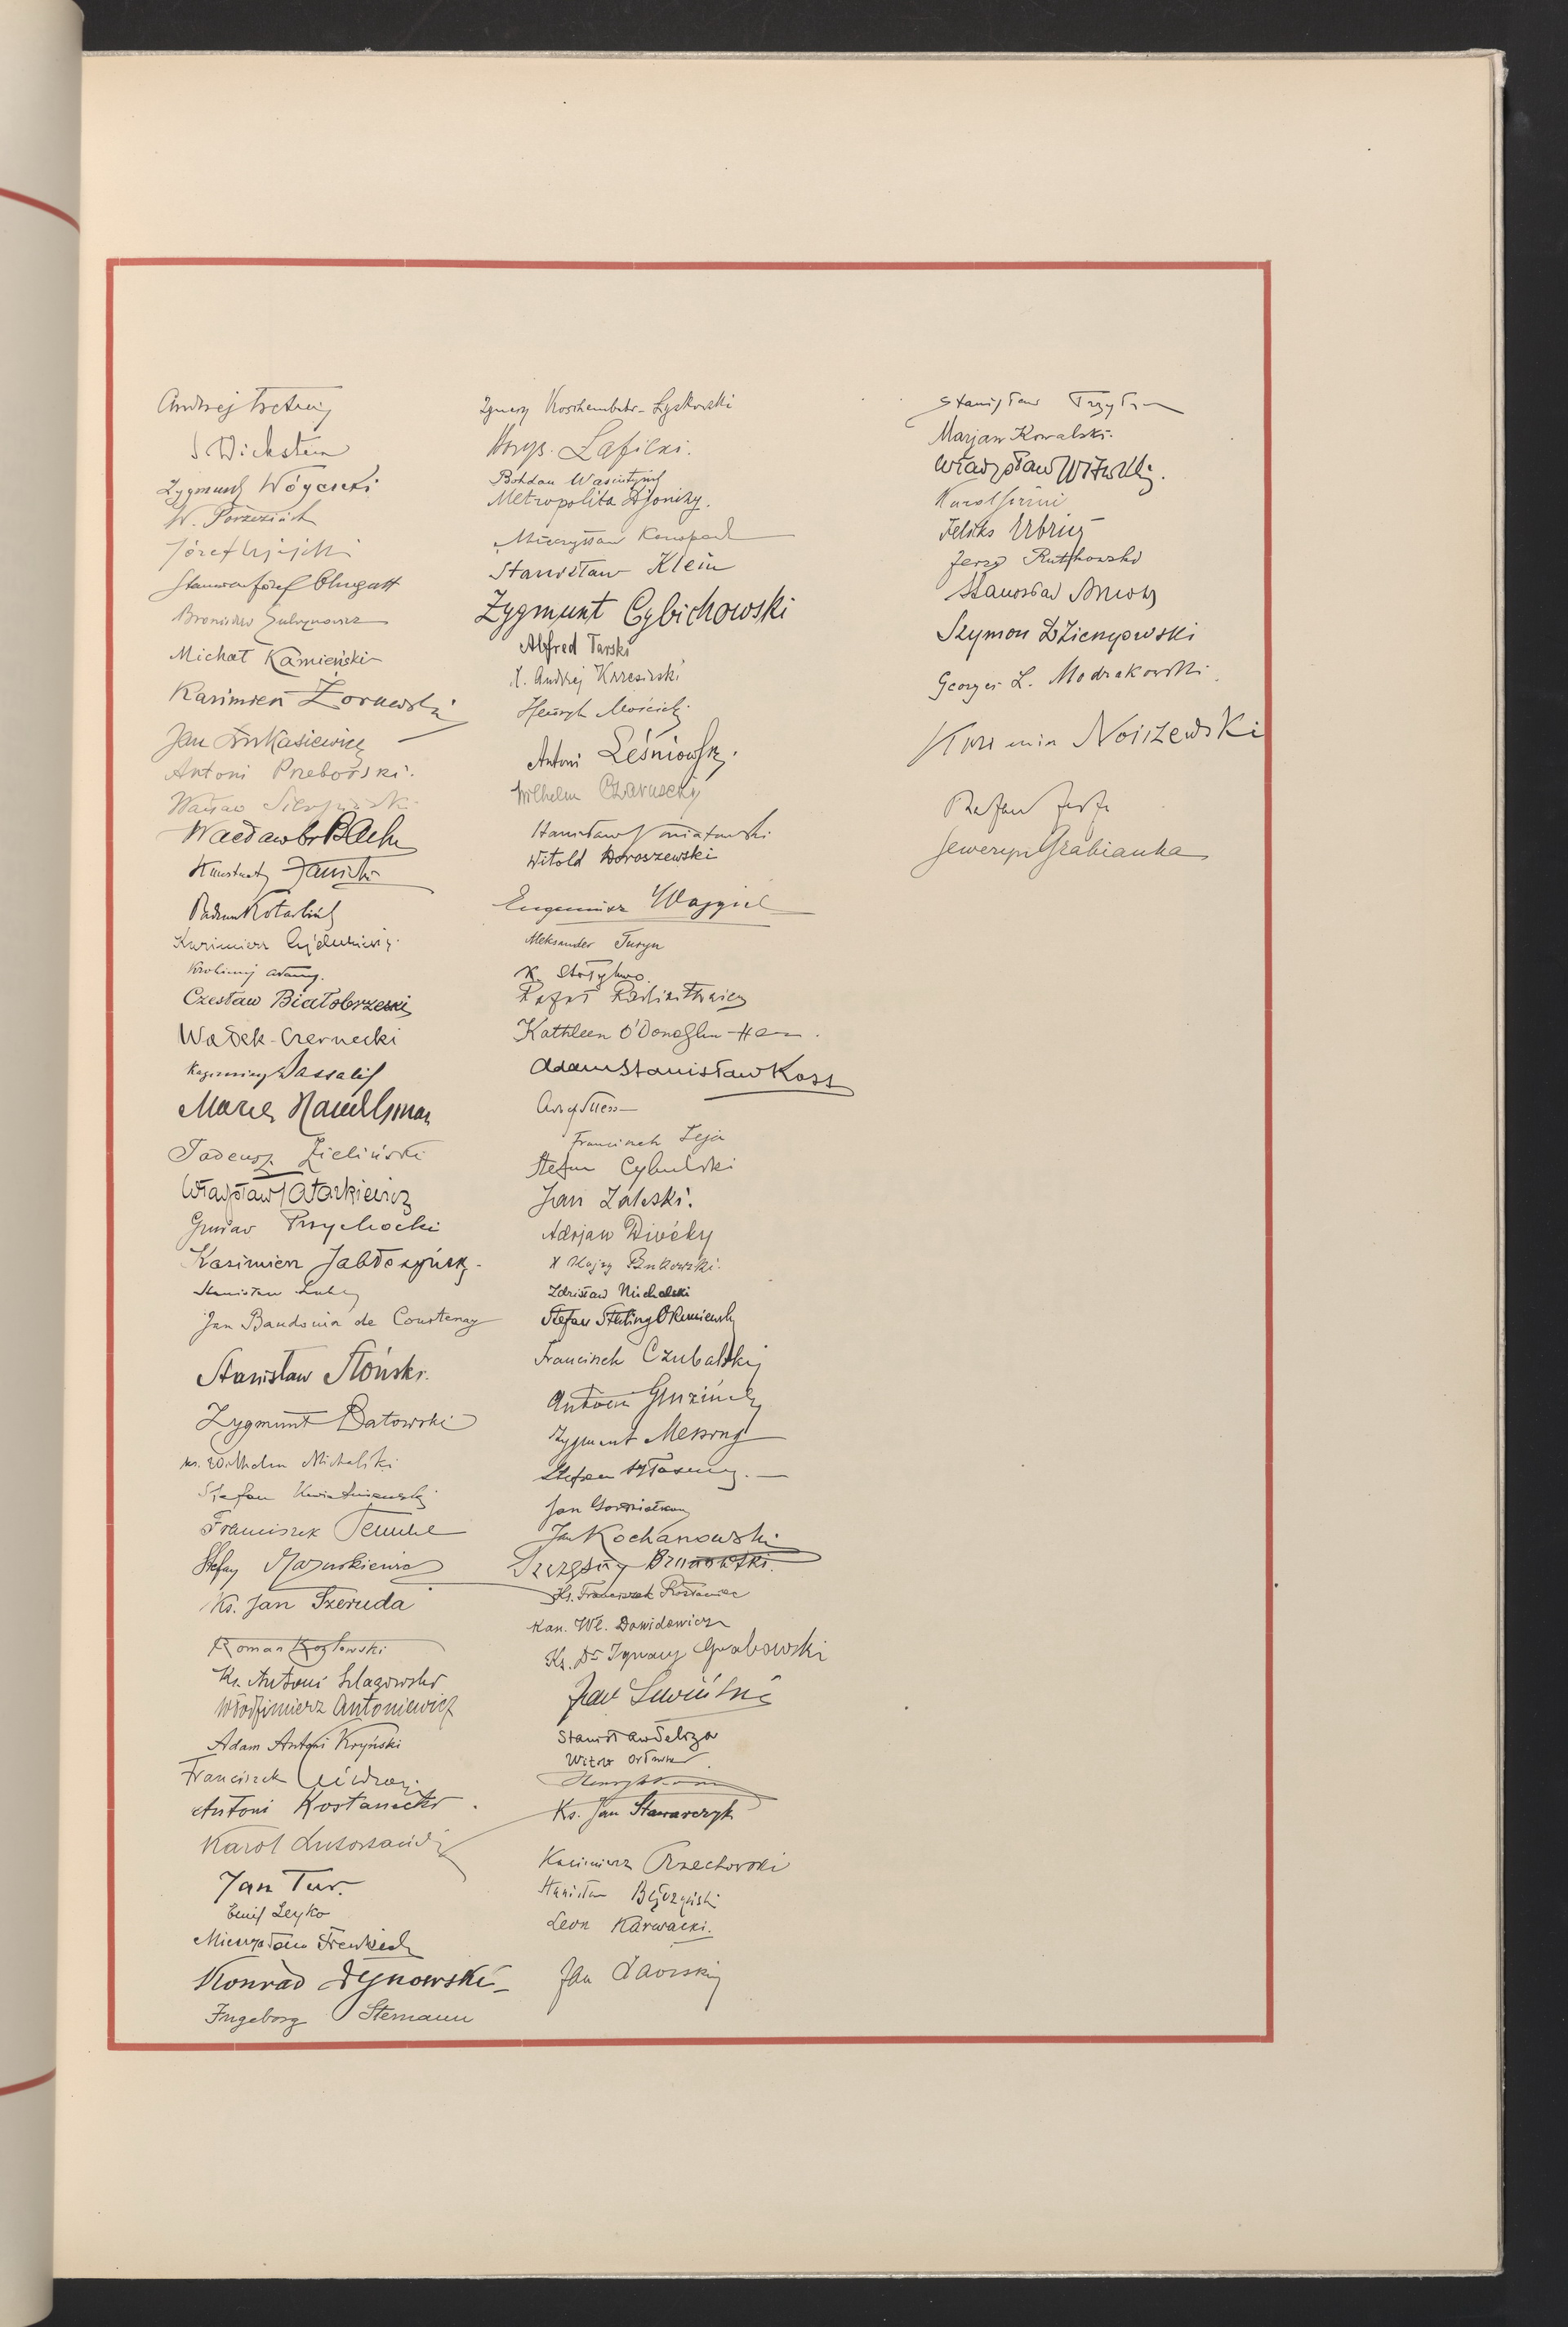 Andrzej Tretiak
S Dickstein
Zygmunt Wóycicki
W. Porzeziński
Józef Ujejski
Stanisław Józef Thugutt
Bronisław Gubrynowicz
Michał Kamieński
Kazimierz Żorawski
Jan Łukasiewicz
Antoni Przeborski.
Wacław Sierpiński
Wacław
Konstanty Janicki
Kazimierz
Czesław Białobrzeski
Wąsek-Czernecki
Kazimierz Jassalij
Marceli Handelsman
Tadeusz Zieliński
Władysław Tatarkiewicz
Gustaw Przychocki
Kazimierz Jabłczyński
Stanisław
Jan Baudouin de Courtenay
Stanisław Słoński.
Zygmunt Batowski
ks. Wilhelm Michalski
Stefan Kwietniewski
Franciszek Tennhe
Stefan Mazurkiewicz
Ks. Jan Szeruda
Roman Kozłowski
Ks. Antoni Szlagowski
Włodzimierz Antoniewicz
Adam Antoni Kryński
Franciszek
Antoni Kostanecki
Karol Lutostański
Jan Tur.
Emil Leyko
Mieczysław Frenkiel
Konrad Dynowski
Ingeborg Stemann
Ignacy Koschembahr-Łyskowski
Borys Łapicki.
Bohdan Wasiutyński
Metropolita Djonizy.
Mieczysław Konopacki
Stanisław Klein
Zygmunt Cybichowski
Alfred Tarski
X. Andrzej Krzesiński
Henryk Mościcki
Antoni Leśniowski.
Wilhelm Czarnocki
Stanisław Poniatowski
Witold Doroszewski
Eugeniusz Warpiel
Aleksander Turyn
K. Stołyhwo
Rafał Radziwiłłowicz
Kathleen O'Donoghu-H
Adam Stanisław Koss
Franciszek Leja
Stefan Cybulski
Jan Zaleski.
Adrjan Divéky
X Bukowski.
Zdzisław Michalski
Stefan Sterling Okuniewski
Franciszek Czubalski
Antoni Gruziński
Zygmunt Messing
Stefan
Jan
Jan Kochanowski
Szczęsny Bronowski.
Ks. Franciszek Rosłaniec
Kan. Wł. Dawidowicz
Ks. Dr Ignacy Grabowski
Jan
Stanisław
Witold Orłowski
Henryk
Ks. Jan Stawarczyk
Kazimierz Orzechowski
Stanisław
Leon Karwacki.
Jan Zaorski
Stanisław
Marjan Kowalski.
Władysław Witwicki.
Karol
Feliks
Jerzy Rutkowski
Stanisław
Szymon Dzierzgowski
Georges L. Modrakowski
Kazimierz Noiszewski
Stefan
Seweryn Grabianka